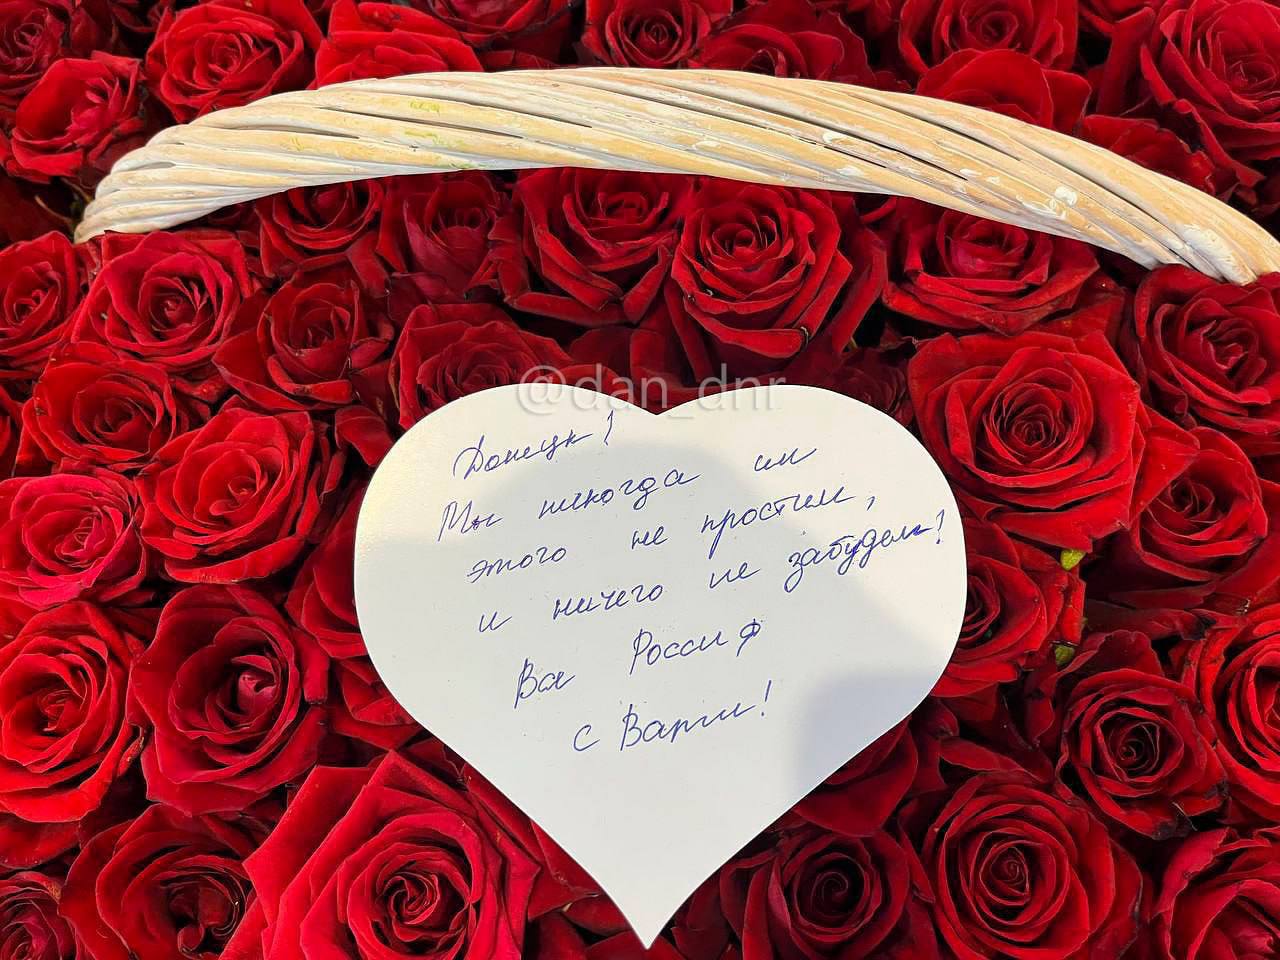 @dan_dnr
Донецк!
Мы никогда им
этого не простим,
и ничего не забудем!
Вся Россия
с Вами!